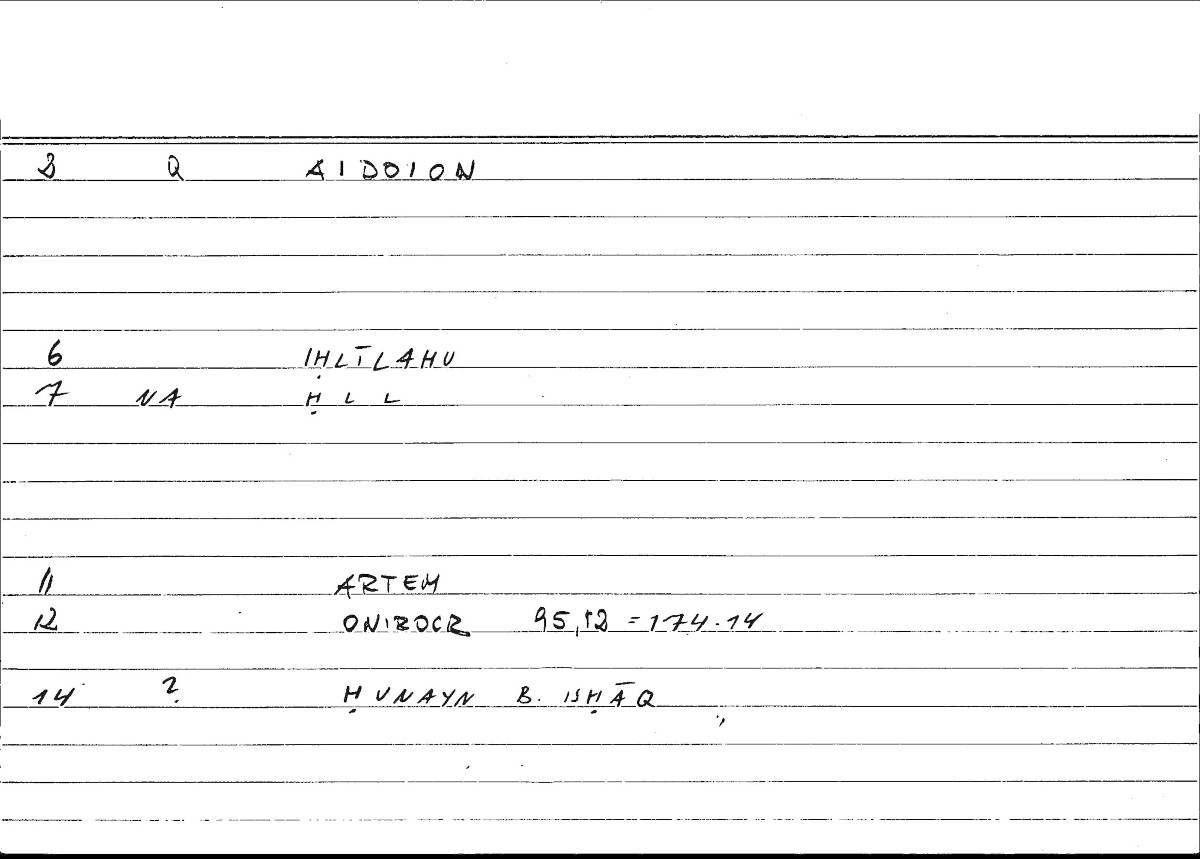 3 Q AIDOION
6 IḤLĪLAHU
7 NA Ḥ L L
11 ARTEM
12 ONIROCR 95,12 = 174.14
14 ? ḤUNAYN B. ISḤĀQ